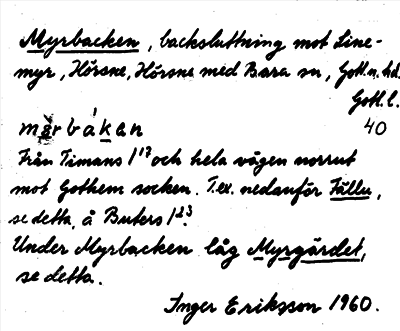 Myrbacken, backsluttning mot Line-
myr, Hörsne, Hörsne med Bara sn, Gotl.n.hd.
Gotl.l.
40
Från Timans 1¹² och hela vägen norrut
mot Gothem socken. T.ex. nedanför Fyllu,
se detta, å Buters 1²³.
Under Myrbacken låg Myrgärdet,
se detta.
Inger Eriksson 1960.